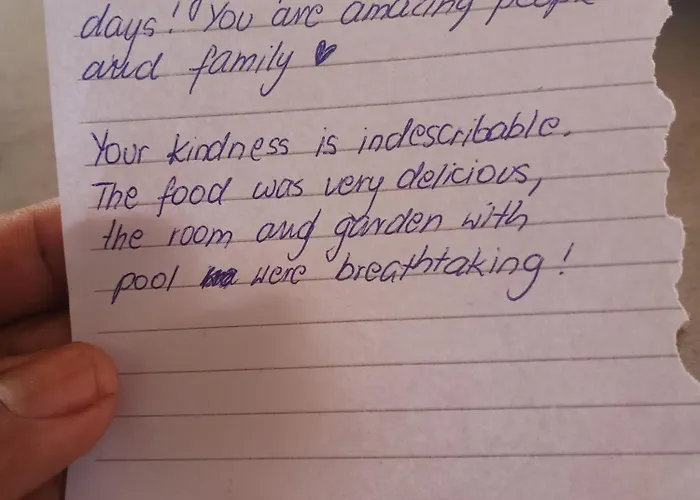 days! You are amazing people
and family ♥
Your kindness is indescribable.
The food was very delicious,
the room and garden with
pool were breathtaking!